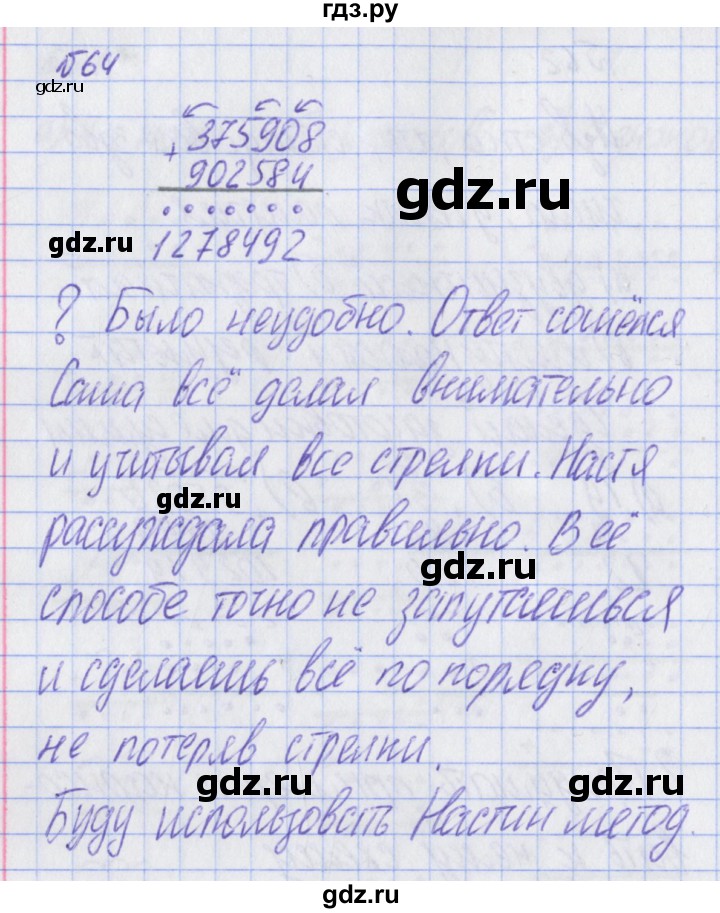 гдз.ру
№64
gdz.ru
375908
+
902584
gdz.ru
gdz.ru
1278492
? Было неудобно. Ответ сошёлся
Саша всё делал внимательно
и учитывал все стрелки. Настя
gdz.ru
рассуждала правильно. В её
gdz.ru
способе точно не запутаешься
и сделаешь всё по порядку,
не потеряв стрелки.
gdz.ru
gdz.ru
Буду использовать Настин метод.
гдз.ру